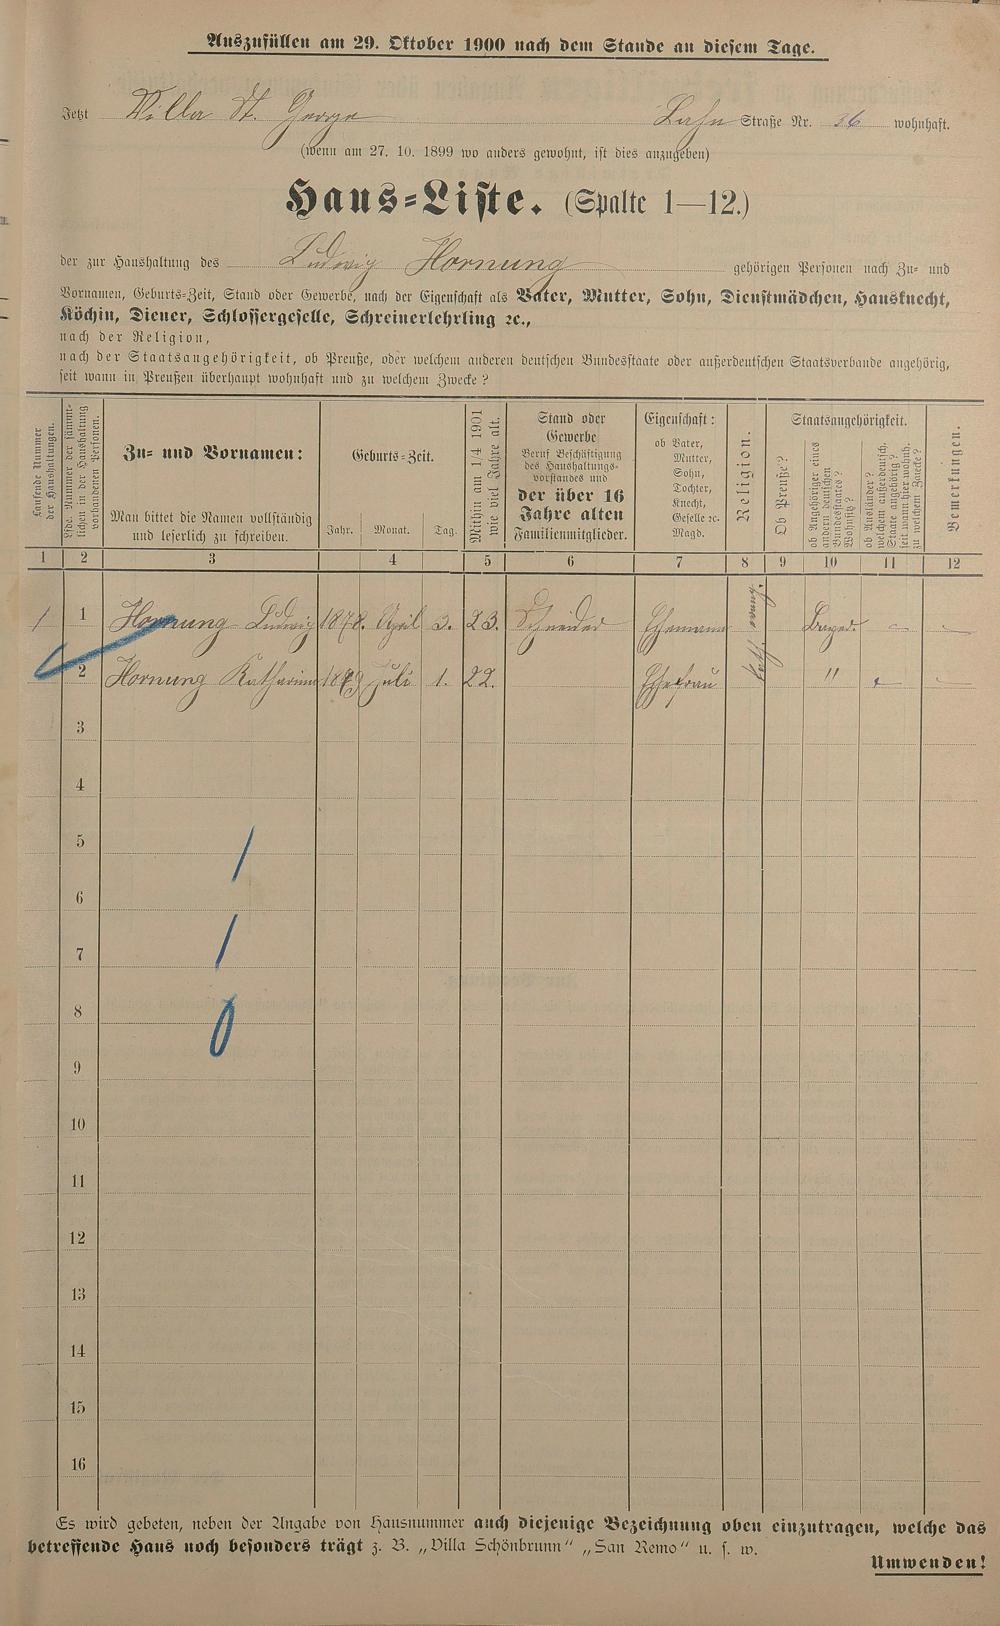 Auszufüllen am 29. Oktober 1900 nach dem Stande an diesem Tage.
Jetzt Villa St. George Lahn Straße Nr. wohnhaft.
(wenn am 27. 10. 1899 wo anders gewohnt, ist dies anzugeben)
Haus-Liste. (Spalte 1—12.)
der zur Haushaltung des Ludwig Hornung gehörigen Personen nach Zu- und
Vornamen, Geburts-Zeit, Stand oder Gewerbe, nach der Eigenschaft als Vater, Mutter, Sohn, Dienstmädchen, Hausknecht,
Köchin, Diener, Schlossergeselle, Schreinerlehrling ꝛc.,
nach der Religion,
nach der Staatsangehörigkeit, ob Preuße, oder welchem anderen deutschen Bundesstaate oder außerdeutschen Staatsverbande angehörig,
seit wann in Preußen überhaupt wohnhaft und zu welchem Zwecke?
Laufende Nummer
der Haushaltungen.
Lfde. Nummer der sämmt-
lichen in der Haushaltung
vorhandenen Personen.
Zu- und Vornamen:
Man bittet die Namen vollständig
und leserlich zu schreiben.
Geburts-Zeit.
Jahr. Monat. Tag.
Mithin am 1/4 1901
wie viel Jahre alt.
Stand oder
Gewerbe
Beruf Beschäftigung
des Haushaltungs-
vorstandes und
der über 16
Jahre alten
Familienmitglieder.
Eigenschaft:
ob Vater,
Mutter,
Sohn,
Tochter,
Knecht,
Geselle ꝛc.
Magd.
Religion.
Staatsangehörigkeit.
Ob Preuße?
ob Angehöriger eines
andern deutschen
Bundesstaates?
Wohnsitz?
ob Ausländer?
welchem außerdeutsch.
Staate angehörig?
seit wann hier wohnh.
zu welchem Zwecke?
Bemerkungen.
1 2 3 4 5 6 7 8 9 10 11 12
1 1 Hornung Ludwig 1878. April 3. 23. Schneider Ehemann evang. - -
2 Hornung Katharina 1879 Juli 1. 22. Ehefrau kath. " - -
3
4
5
6
7
8
9
10
11
12
13
14
15
16
Es wird gebeten, neben der Angabe von Hausnummer auch diejenige Bezeichnung oben einzutragen, welche das
betreffende Haus noch besonders trägt z. B. „Villa Schönbrunn“ „San Remo“ u. s. w.
Umwenden!